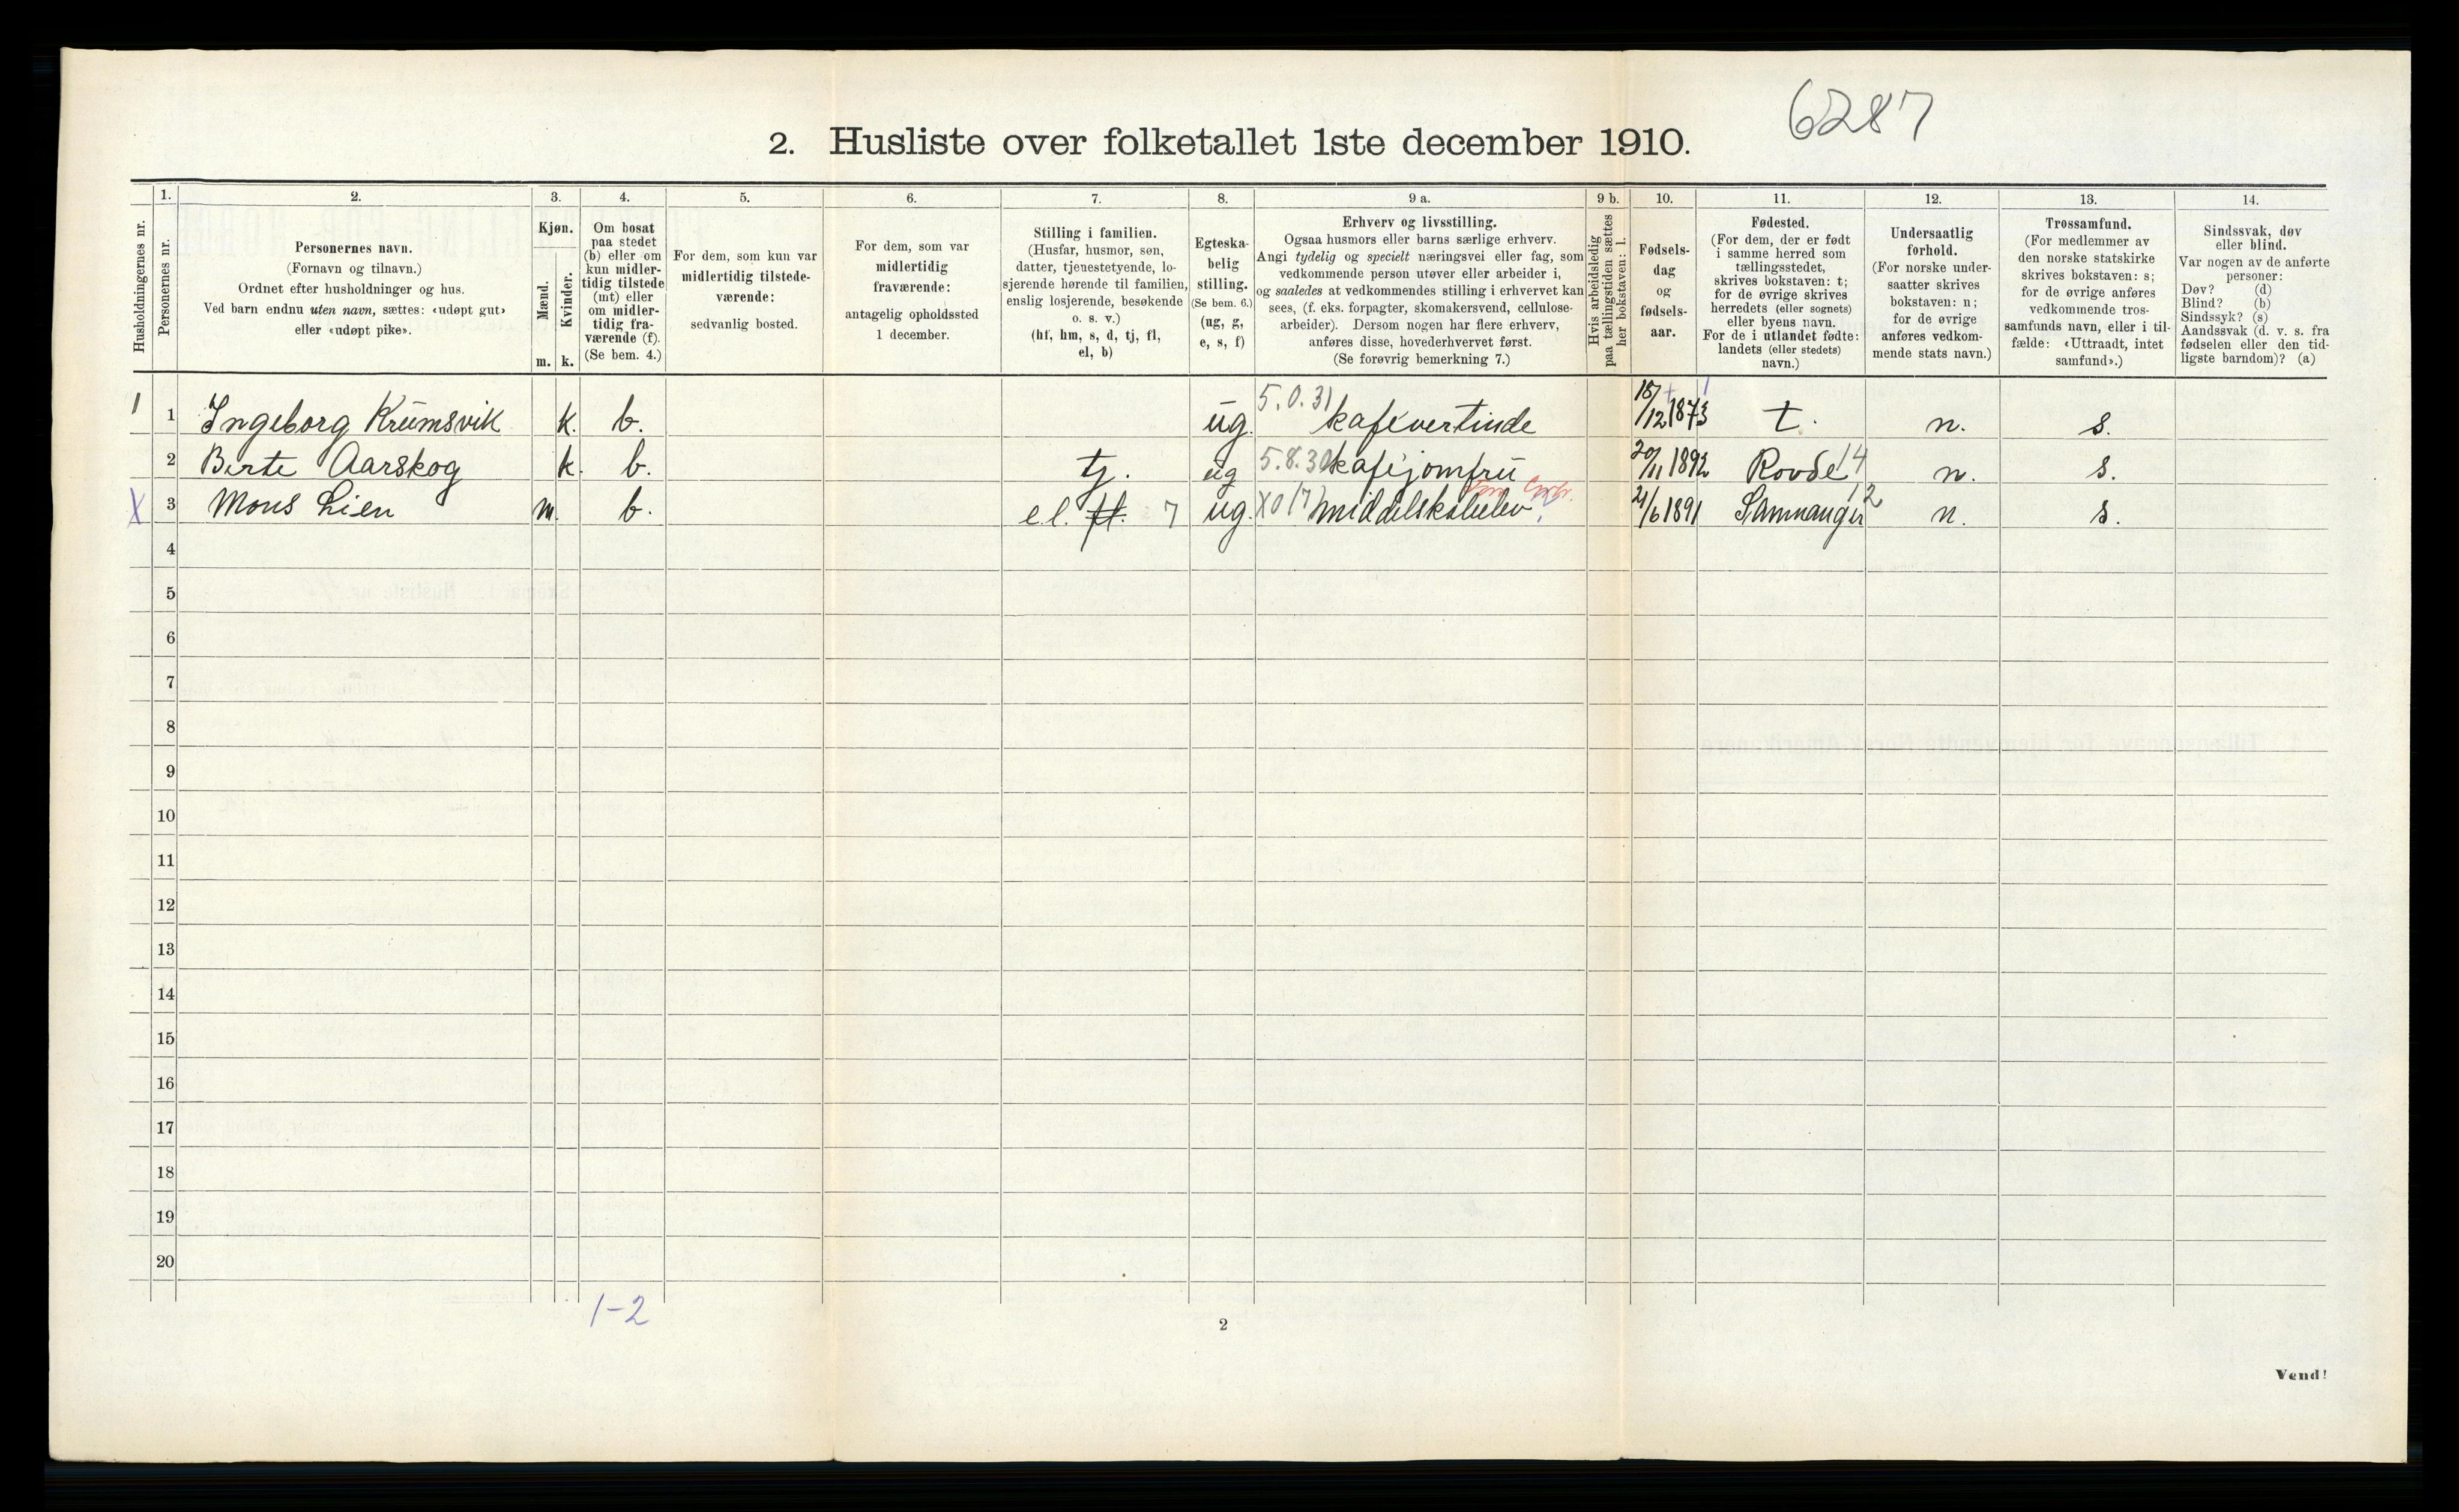 6287
2. Husliste over folketallet 1ste december 1910.
Husholdningernes nr.
1.
Personernes nr.
2.
Personernes navn.
(Fornavn og tilnavn.)
Ordnet efter husholdninger og hus.
Ved barn endnu uten navn, sættes: «udøpt gut»
eller «udøpt pike».
3.
Kjøn.
Mænd.
Kvinder.
m. k.
4.
Om bosat
paa stedet
(b) eller om
kun midler-
tidig tilstede
(mt) eller
om midler-
tidig fra-
værende (f).
(Se bem. 4.)
5.
For dem, som kun var
midlertidig tilstede-
værende:
sedvanlig bosted.
6.
For dem, som var
midlertidig
fraværende:
antagelig opholdssted
1 december.
7.
Stilling i familien.
(Husfar, husmor, søn,
datter, tjenestetyende, lo-
sjerende hørende til familien,
enslig losjerende, besøkende
o. s. v.)
(hf, hm, s, d, tj, fl,
el, b)
8.
Egteska-
belig
stilling.
(Se bem. 6.)
(ug, g,
e, s, f)
9 a.
Erhverv og livsstilling.
Ogsaa husmors eller barns særlige erhverv.
Angi tydelig og specielt næringsvei eller fag, som
vedkommende person utøver eller arbeider i,
og saaledes at vedkommendes stilling i erhvervet kan
sees, (f. eks. forpagter, skomakersvend, cellulose-
arbeider). Dersom nogen har flere erhverv,
anføres disse, hovederhvervet først.
(Se forøvrig bemerkning 7.)
9 b.
Hvis arbeidsledig
paa tællingstiden sættes
her bokstaven: l.
10.
Fødsels-
dag
og
fødsels-
aar.
11.
Fødested.
(For dem, der er født
i samme herred som
tællingsstedet,
skrives bokstaven: t;
for de øvrige skrives
herredets (eller sognets)
eller byens navn.
For de i utlandet fødte:
landets (eller stedets)
navn.)
12.
Undersaatlig
forhold.
(For norske under-
saatter skrives
bokstaven: n;
for de øvrige
anføres vedkom-
mende stats navn.)
13.
Trossamfund.
(For medlemmer av
den norske statskirke
skrives bokstaven: s;
for de øvrige anføres
vedkommende tros-
samfunds navn, eller i til-
fælde: «Uttraadt, intet
samfund».)
14.
Sindssvak, døv
eller blind.
Var nogen av de anførte
personer:
Døv? (d)
Blind? (b)
Sindssyk? (s)
Aandssvak (d. v. s. fra
fødselen eller den tid-
ligste barndom)? (a)
1 1 Ingeborg Krumsvik k. b. ug. 5.0.31 kafévertinde 15/12 1873 t. n. s.
2 Berte Aarskog k. b. tj. ug 5.8.30 kaféjomfru 20/11 1892 Rovde 14 n. s.
X 3 Mons Lien m. b. el. fl. 7 ug. X017 middelskoleelev 21/6 1891 Samnanger 12 n. s.
4
5
6
7
8
9
10
11
12
13
14
15
16
17
18
19
20
1-2
2
Vend!